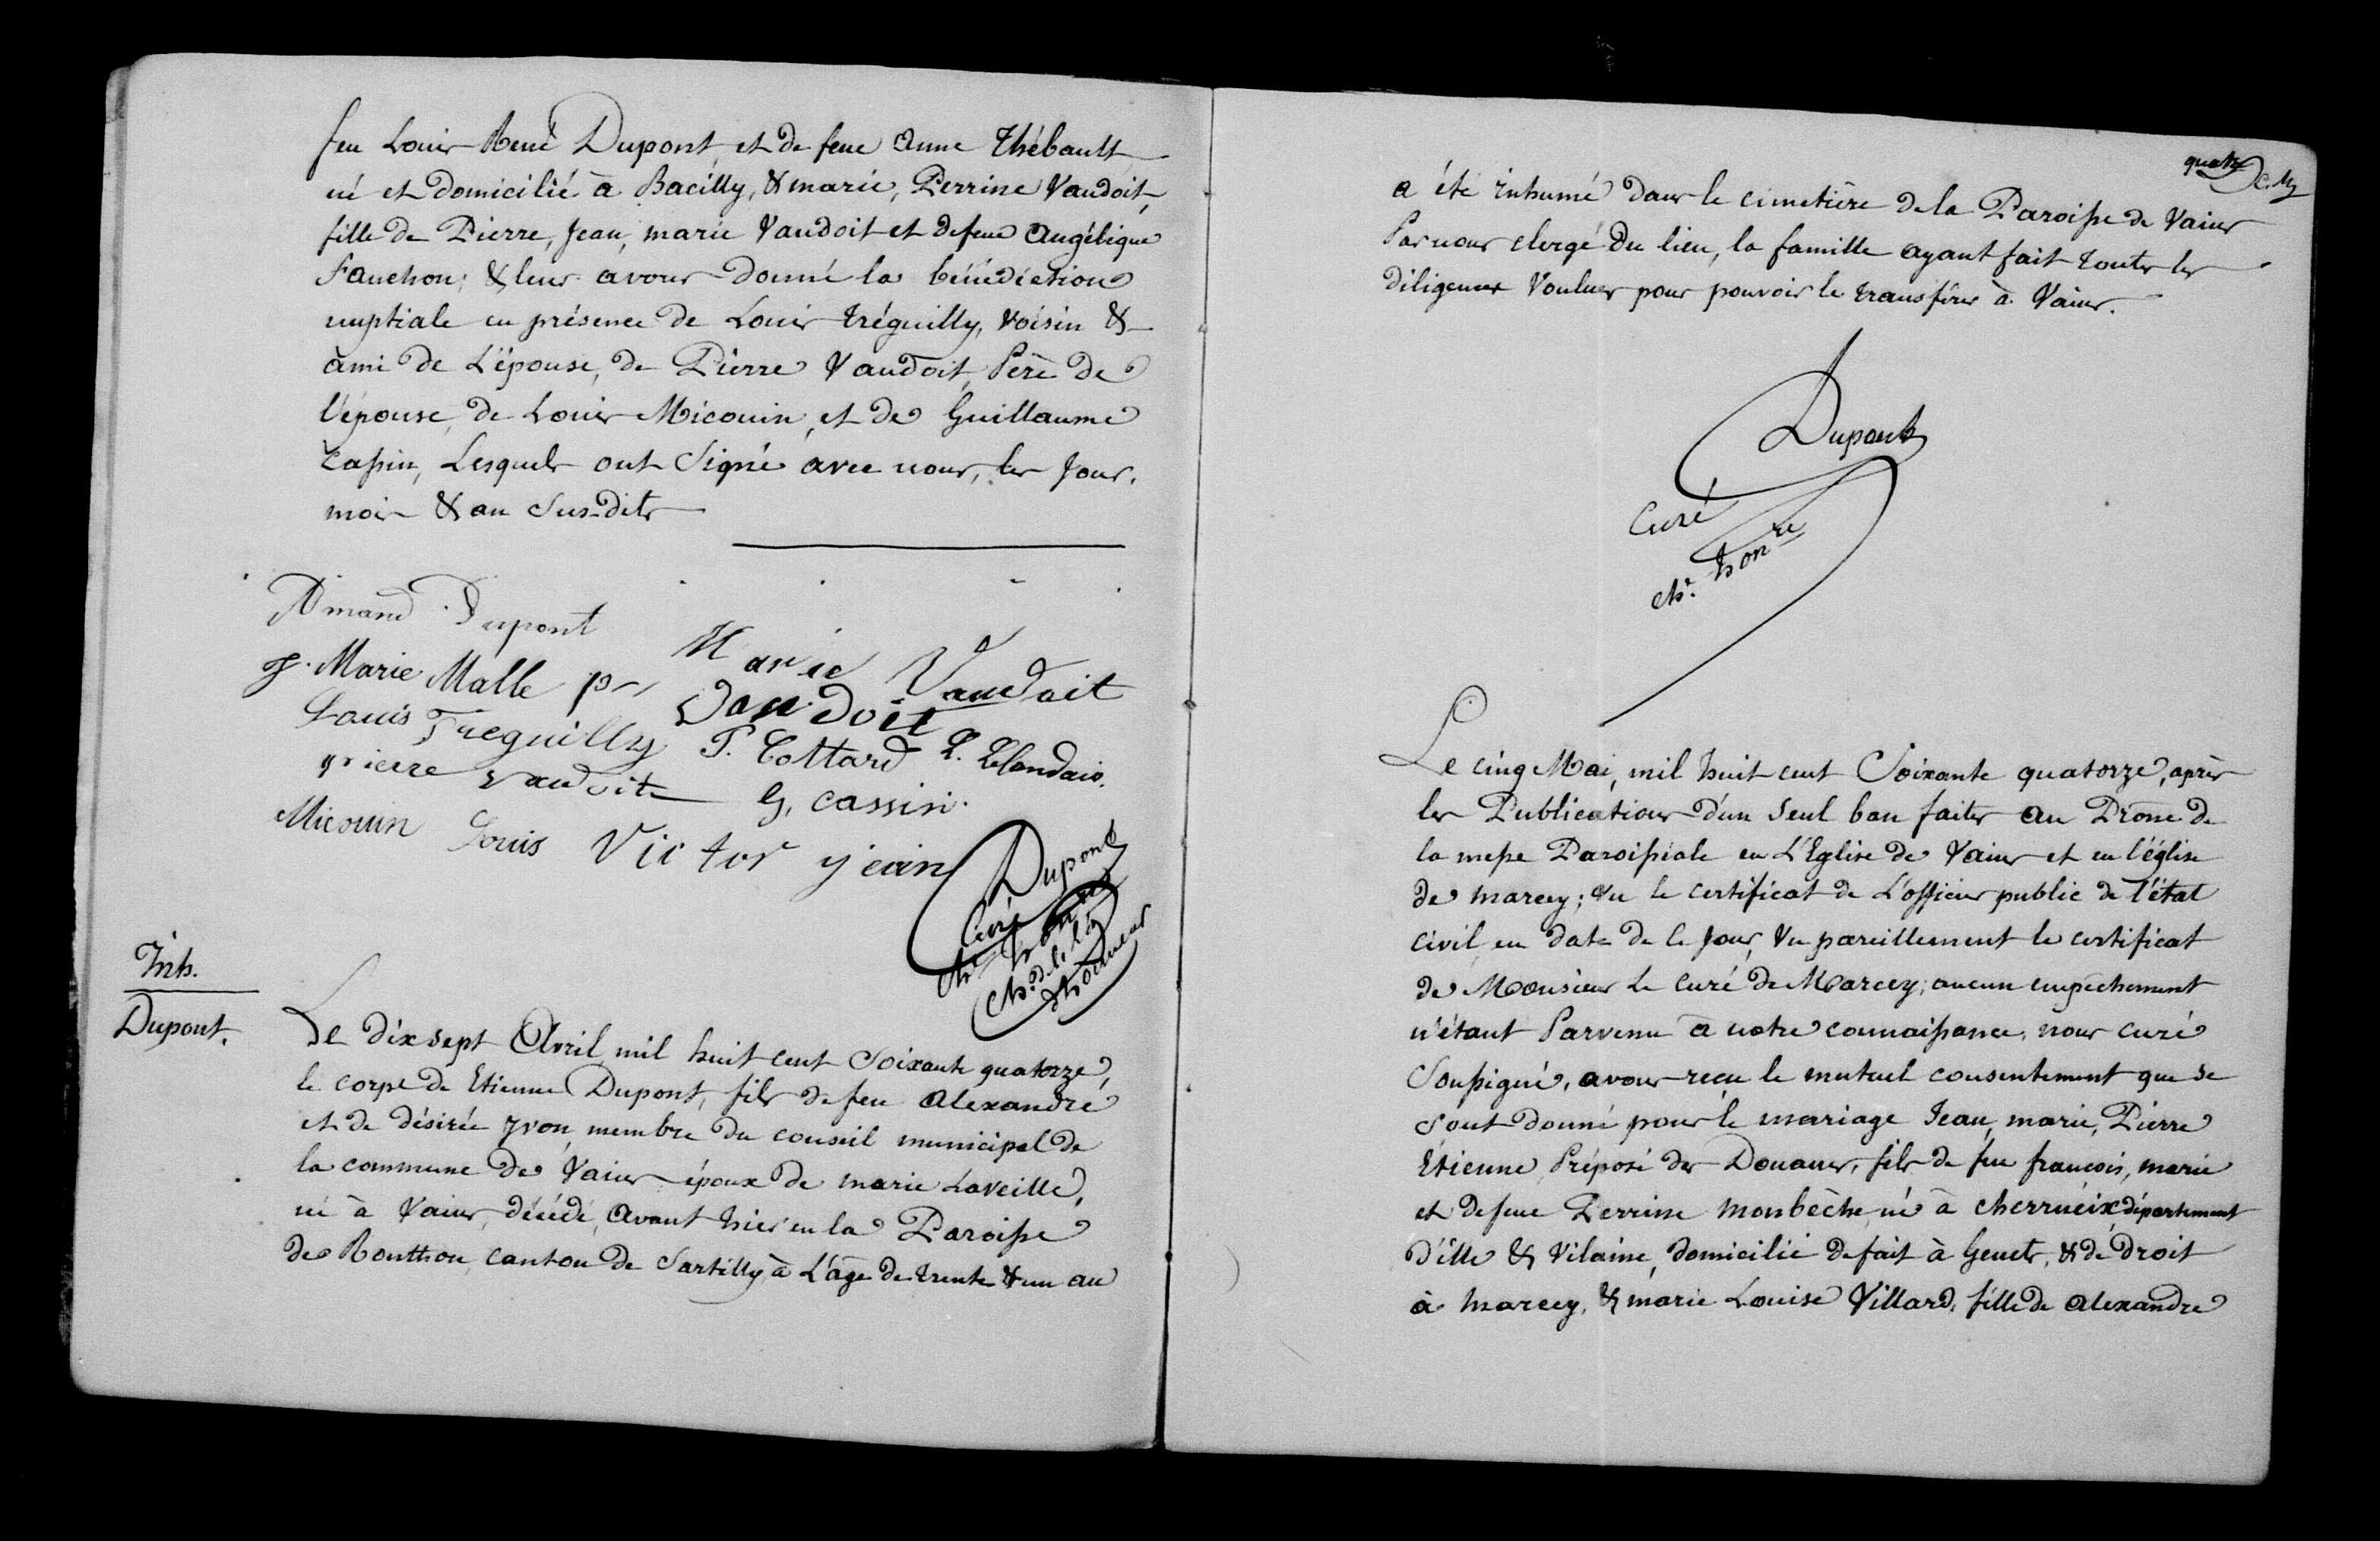 feu Louis René Dupont, et de feue Anne Thébault
né et domicilié à Bacilly, & marie, Perrine Vaudoit,
fille de Pierre, Jean, marie Vaudoit et de feue Angélique
Fauchon; & leur avons donné la bénédiction
nuptiale en présence de Louis Tréguilly, voisin &
ami de L'épouse, de Pierre Vaudoit, Père de
l'épouse, de Louis Micouin, et de Guillaume
Cassin, Lesquels ont Signé avec nous, les Jour,
mois & an Sus-dits
Amand Dupont
Marie Vaudoit
J. Marie Malle
Vaudoit
Louis Treguilly P. Cottard L. Leblandais
pierre vaudoit G. cassin.
Micouin Louis Victor jean
Dupont
Curé
ch. honre
ch. de la
d'honneur
Inh.
Dupont.
Le dix sept Avril mil huit cent Soixante quatorze,
le corps de Etienne Dupont, fils de feu Alexandre
et de désirée yvon, membre du conseil municipal de
la commune de Vains époux de marie Laveille,
né à Vains, décédé, avant hier en la Paroisse
de Ronthon, canton de Sartilly à L'âge de trente & un an
quatre C. M
a été inhumé dans le cimetière de la Paroisse de Vains
Par nous clergé du lieu, la famille ayant fait toutes les
diligences Voulues pour pouvoir le transférer à Vains.
Dupont
Curé
ch. honre
Le cinq Mai, mil huit cent Soixante quatorze, après
les Publications d'un Seul ban faites au Prône de
la messe Paroissiale en L'Eglise de Vains et en l'église
de marcey; vu le certificat de L'officier public de l'état
civil en date de ce Jour, Vu pareillement le certificat
de Monsieur Le curé de Marcey; aucun empêchement
n'étant Parvenu à notre connaissance, nous curé
Soussigné, avons reçu le mutuel consentement que se
sont donné pour le mariage Jean, marie, Pierre
Etienne, Préposé des Douanes, fils de feu françois, marie
et de feue Perrine Monbèche, né à cherrueix département
d'ille & Vilaine, domicilié de fait à Genets, & de droit
à Marcey, & marie Louise Villard, fille de Alexandre